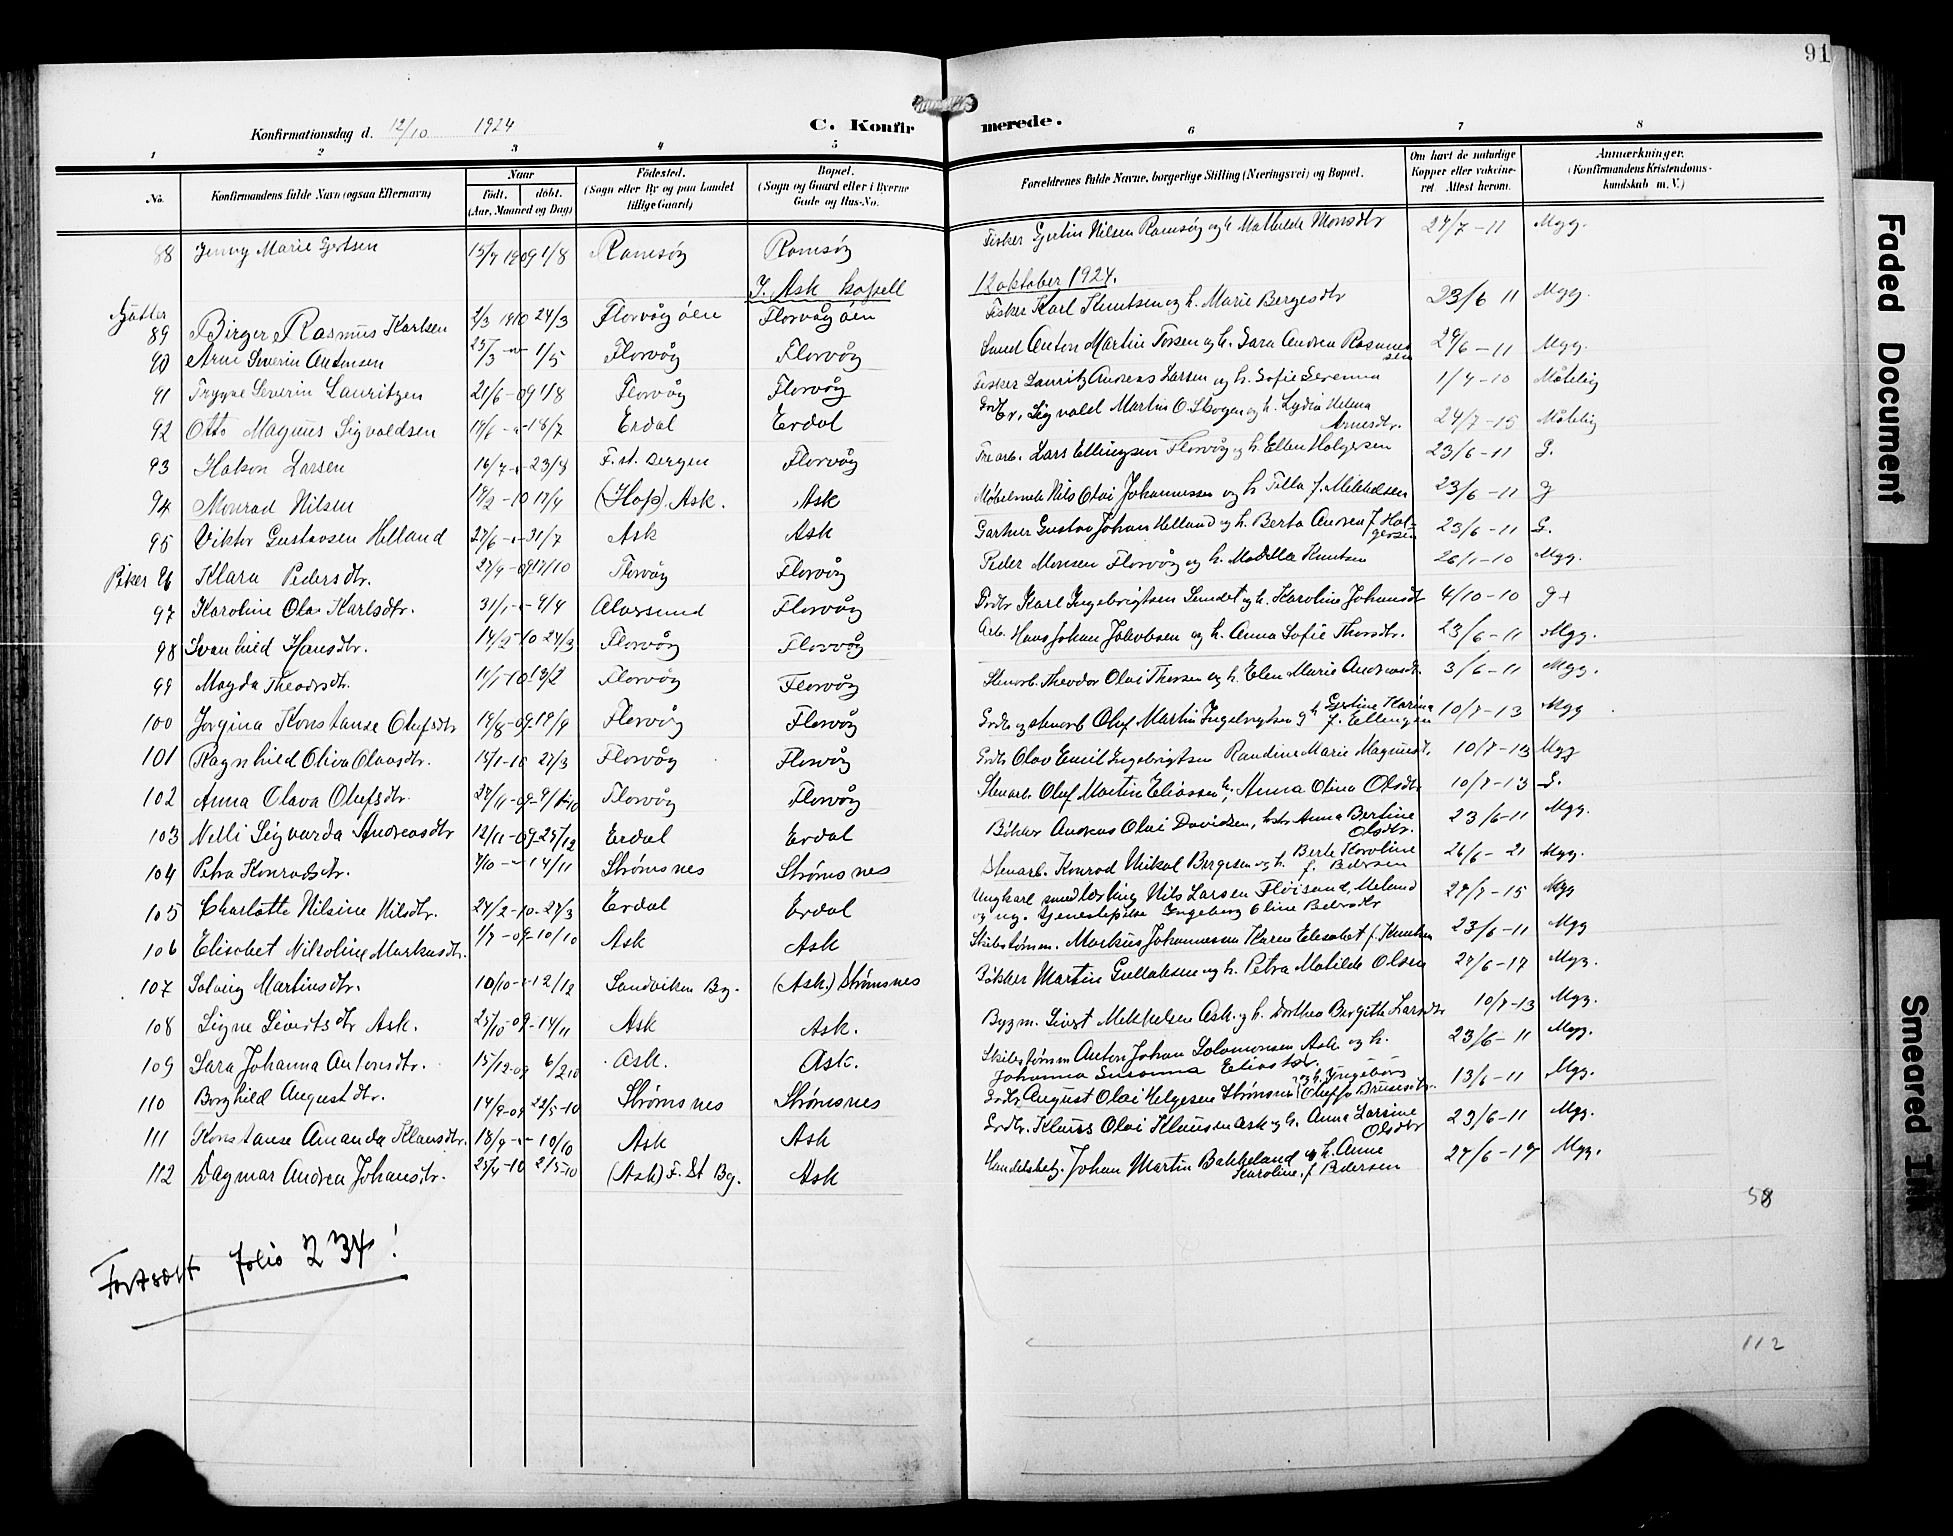 91
Konfirmationsdag d. 12/10 1924
C. Konfirmerede.
1 2 3 4 5 6 7 8
No. Konfirmandens fulde Navn (ogsaa Efternavn) Naar Født. døbt. (Aar, Maaned og Dag) Fødested. (Sogn eller By og paa Landet tillige Gaard) Bopæl. (Sogn og Gaard eller i Byerne Gade og Hus-No. Forældrenes fulde Navne, borgerlige Stilling (Næringsvei) og Bopæl. Om havt de naturlige Kopper eller vaccineret Attest herom. Anmærkninger. (Konfirmandens Kristendomskundskab m. V.)
88 Jenny Marie Gjertsen 15/7 1909 1/8 Ramsøy Ramsøy Fisker Gjertin Nilsen Ramsøy og h. Mathilde Monsdtr 27/7-11 Mgg.
I. Ask kapell 12 oktober 1924.
Gutter
89 Birger Rasmus Karlsen 2/3 1910 24/3 Florvågøen Florvågøen Fisker Karl Knutsen og h. Marie Bergesdtr 23/6 11 Mgg.
90 Arne Severin Antonsen 25/3 -"- 1/5 Florvåg Florvåg Smed Anton Martin Torsen og h. Sara Andrea Rasmussen 29/6-11 Mgg.
91 Trygve Severin Lauritzen 21/6-09 1/8 Florvåg Florvåg Fisker Lauritz Andreas Larsen og h. Sofie Severina 1/4-10 Måtelig
92 Otto Magnus Sigvaldsen 14/6 -"- 18/7 Erdal Erdal Sigvald Martin O. Skogen og h. Lydia Helena Arnesdtr. 24/7-15 Måtelig
93 Hakon Larsen 16/7 -"- 23/8 F.st. Bergen Florvåg Trearb. Lars Ellingsen Florvåg og h. Ellen Holgersen 23/6-11 G.
94 Monrad Nilsen 14/2-10 17/4 (Hop) Ask. Ask Nils Olai Johannessen og h. Tilla f. Mikkelsen 23/6-11 g
95 Viktor Gustavsen Helland 27/6 -"- 31/7 Ask Ask Gartner Gustav Johan Helland og h. Berta Andrea f. Holgersen 23/6-11 G.
Piker 96 Klara Pedersdtr. 27/9-09 17/10 Florvåg Florvåg Peder Monsen Florvåg og h. Madella Knutsen 26/1-10 Mgg.
97 Karoline Olai Karlsdtr. 31/1 -"- 4/4 Alversund Florvåg Grdbr Karl Ingebrigtsen Sundet og h. Karoline Johansdtr 4/10-10 g+
98 Svanhild Hansdtr. 14/2-10 24/3 Florvåg Florvåg Arb. Hans Johan Jakobsen og h. Anna Sofie Thorsdtr. 23/6-11 Mgg.
99 Magda Theodsdtr. 11/1-10 13/2 Florvåg Florvåg Stenarb. Theodor Olai Thorsen og h. Elen Marie Andreasdtr. 3/6-11 Mgg.
100 Jorgina Konstanse Olufsdtr 14/8-09 19/9 Florvåg Florvåg Grdbr og stenarb Oluf Martin Ingebrigtsen og h Gjertine Karina f. Ellingsen 10/7-13 Mgg
101 Ragnhild Oliva Olavsdtr. 15/1-10 27/3 Florvåg Florvåg Grdbr Olav Emil Ingebrigtsen Randine Marie Magnusdtr. 10/7-13 Mgg
102 Anna Olava Olufsdtr. 27/11-09 Florvåg Florvåg Stenarb. Oluf Martin Eliassen h. Anna Olina Olsdtr 10/7-13 G.
103 Nelli Sigvarda Andreasdtr 12/11-09 25/12 Erdal Erdal Bøkker Andreas Olai Davidsen, hstr Anna Bertine Olsdtr. 23/6-11 Mgg.
104 Petra Konradsdtr. 7/10 -"- 14/11 Strømsnes Strømsnes Stenarb. Konrad Nikal Bergesen og h. Berte Karoline f. Pedersen 26/6-21 Mgg.
105 Charlotte Nilsine Nilsdtr. 24/2-10 27/3 Erdal Erdal Ungkarl smedlærling Nils Larsen Fløisand, Meland og ug. tjenestepike Ingeborg Oline Pedersdtr 27/7-15 Mgg
106 Elisabet Nikoline Markusdtr. 1/7-09 10/10 Ask Ask Skibstømm. Markus Johannesen Karen Elisabet f. Knutsen 23/6-11 Mgg
107 Solveig Martinsdtr. 10/10 -"- 12/12 Sandviken Bg. (Ask.) Strømsnes Bøkker Martin Gullaksen og h. Petra Matilde Olsen 27/6-17 Mgg.
108 Signe Sivertsdtr Ask. 25/10-09 14/11 Ask Ask. Bygm. Sivert Mikkelsen Ask og h. Dorthea Bergitte Larsdtr 10/7-13 Mgg.
109 Sara Johanna Antonsdtr. 15/12-09 6/2 10 Ask. Ask. Skibstømm Anton Johan Salomonsen Ask og h. Johanna Susanna Eliasdtr. 23/6-11 Mgg.
110 Borghild Augustdtr. 14/9-09 22/5-10 Strømsnes Strømsnes Grdbr August Olai Helgesen Strømsnes og h. Ingeborg 13/6-11 Mgg.
111 Konstanse Amanda Klausdtr. 18/9 -"- 10/10 Ask Ask Grdbr. Klauss Olai Klausen Ask og h. Anna Larsine Olsdtr 23/6-11 Mgg.
112 Dagmar Andrea Johansdtr. 25/4-10 2/5-10 (Ask) F. St Bg. Ask Handelsbetj. Johan Martin Bakkeland og h. Anne Karoline f. Pedersen 27/6-17 Mgg.
58
Fortsætt folio 234!
112
Faded Document
Smeared Ink